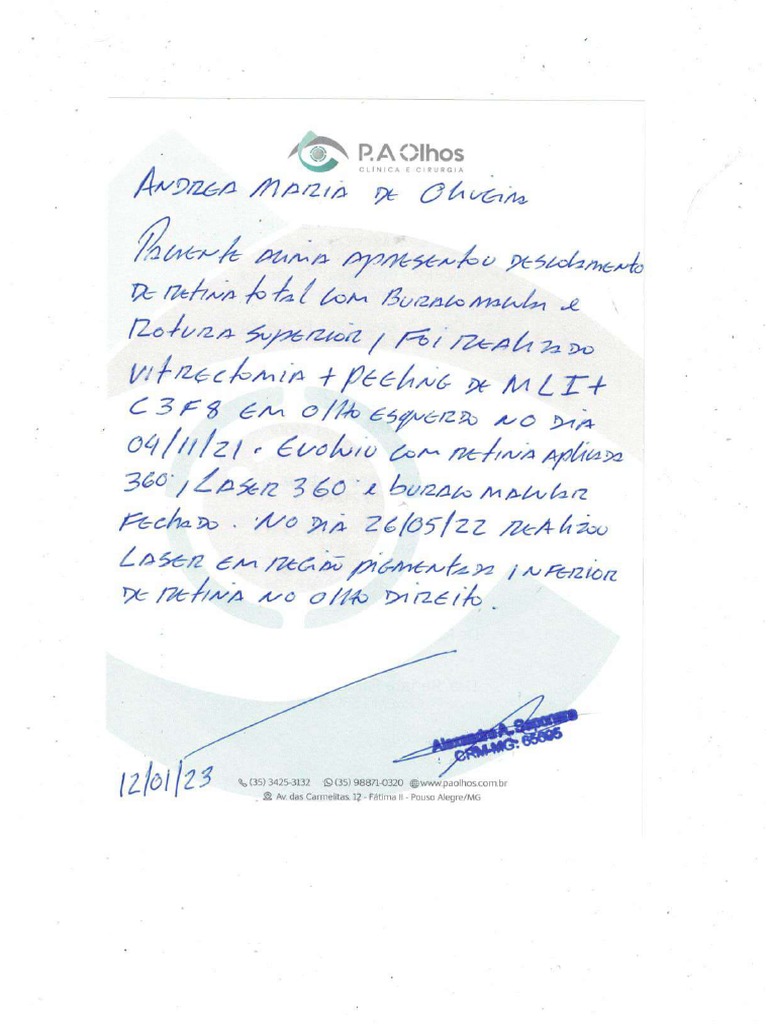 P.A Olhos
CLÍNICA E CIRURGIA
ANDREA MARIA DE OLIVEIRA
PACIENTE ACIMA APRESENTOU DESCOLAMENTO
DE RETINA TOTAL COM BURACO MACULAR e
ROTURA SUPERIOR, FOI REALIZADO
VITRECTOMIA + PEELING DE MLI +
C3F8 EM OLHO ESQUERDO NO DIA
04/11/21. EVOLUIU COM RETINA APLICADA
360°, LASER 360° e BURACO MACULAR
FECHADO. NO DIA 26/05/22 REALIZOU
LASER EM REGIÃO PIGMENTADA INFERIOR
DE RETINA NO OLHO DIREITO.
Alexandre A.
CRM-MG: 65695
12/01/23
(35) 3425-3132 (35) 98871-0320 www.paolhos.com.br
Av. das Carmelitas, 12 - Fátima II - Pouso Alegre/MG